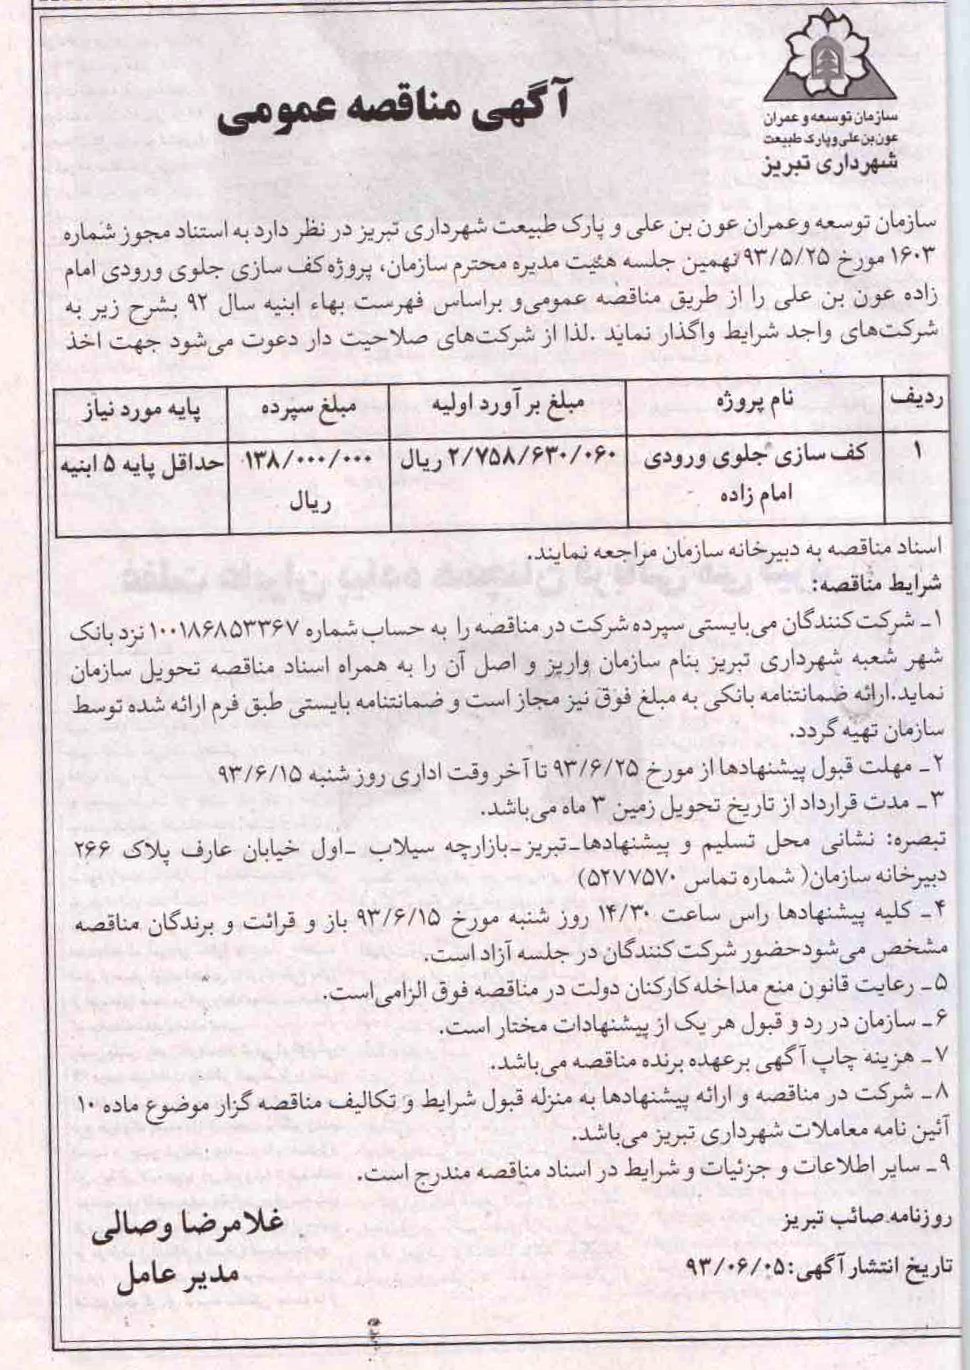 سازمان توسعه و عمران
عون بن علی و پارک طبیعت
شهرداری تبریز
آگهی مناقصه عمومی
سازمان توسعه وعمران عون بن علی و پارک طبیعت شهرداری تبریز در نظر دارد به استناد مجوز شماره
۱۶۰۳ مورخ ۹۳/۵/۲۵نهمین جلسه هئیت مدیره محترم سازمان، پروژه کف سازی جلوی ورودی امام
زاده عون بن علی را از طریق مناقصه عمومی و براساس فهرست بهاء ابنیه سال ۹۲ بشرح زیر به
شرکت‌های واجد شرایط واگذار نماید .لذا از شرکت‌های صلاحیت دار دعوت می‌شود جهت اخذ
ردیف نام پروژه مبلغ بر آورد اولیه مبلغ سپرده پایه مورد نیاز
۱ کف سازی جلوی ورودی ۲/۷۵۸/۶۳۰/۰۶۰ ریال ۱۳۸/۰۰۰/۰۰۰ حداقل پایه ۵ ابنیه
امام زاده ریال
اسناد مناقصه به دبیرخانه سازمان مراجعه نمایند.
شرایط مناقصه:
۱ـ شرکت کنندگان می‌بایستی سپرده شرکت در مناقصه را به حساب شماره ۱۰۰۱۸۶۸۵۳۳۶۷ نزد بانک
شهر شعبه شهرداری تبریز بنام سازمان واریز و اصل آن را به همراه اسناد مناقصه تحویل سازمان
نماید.ارائه ضمانتنامه بانکی به مبلغ فوق نیز مجاز است و ضمانتنامه بایستی طبق فرم ارائه شده توسط
سازمان تهیه گردد.
۲ـ مهلت قبول پیشنهادها از مورخ ۹۳/۶/۲۵ تا آخر وقت اداری روز شنبه ۹۳/۶/۱۵
۳ـ مدت قرارداد از تاریخ تحویل زمین ۳ ماه می‌باشد.
تبصره: نشانی محل تسلیم و پیشنهادها_تبریز_بازارچه سیلاب _اول خیابان عارف پلاک ۲۶۶
دبیرخانه سازمان( شماره تماس ۵۲۷۷۵۷۰)
۴ـ کلیه پیشنهادها راس ساعت ۱۴/۳۰ روز شنبه مورخ ۹۳/۶/۱۵ باز و قرائت و برندگان مناقصه
مشخص می‌شودحضور شرکت کنندگان در جلسه آزاد است.
۵ـ رعایت قانون منع مداخله کارکنان دولت در مناقصه فوق الزامی است.
۶ـ سازمان در رد و قبول هر یک از پیشنهادات مختار است.
۷ـ هزینه چاپ آگهی برعهده برنده مناقصه می‌باشد.
۸ـ شرکت در مناقصه و ارائه پیشنهادها به منزله قبول شرایط و تکالیف مناقصه گزار موضوع ماده ۱۰
آئین نامه معاملات شهرداری تبریز می‌باشد.
۹ـ سایر اطلاعات و جزئیات و شرایط در اسناد مناقصه مندرج است.
روزنامه صائب تبریز
تاریخ انتشار آگهی:۹۳/۰۶/۰۵
غلامرضا وصالی
مدیر عامل